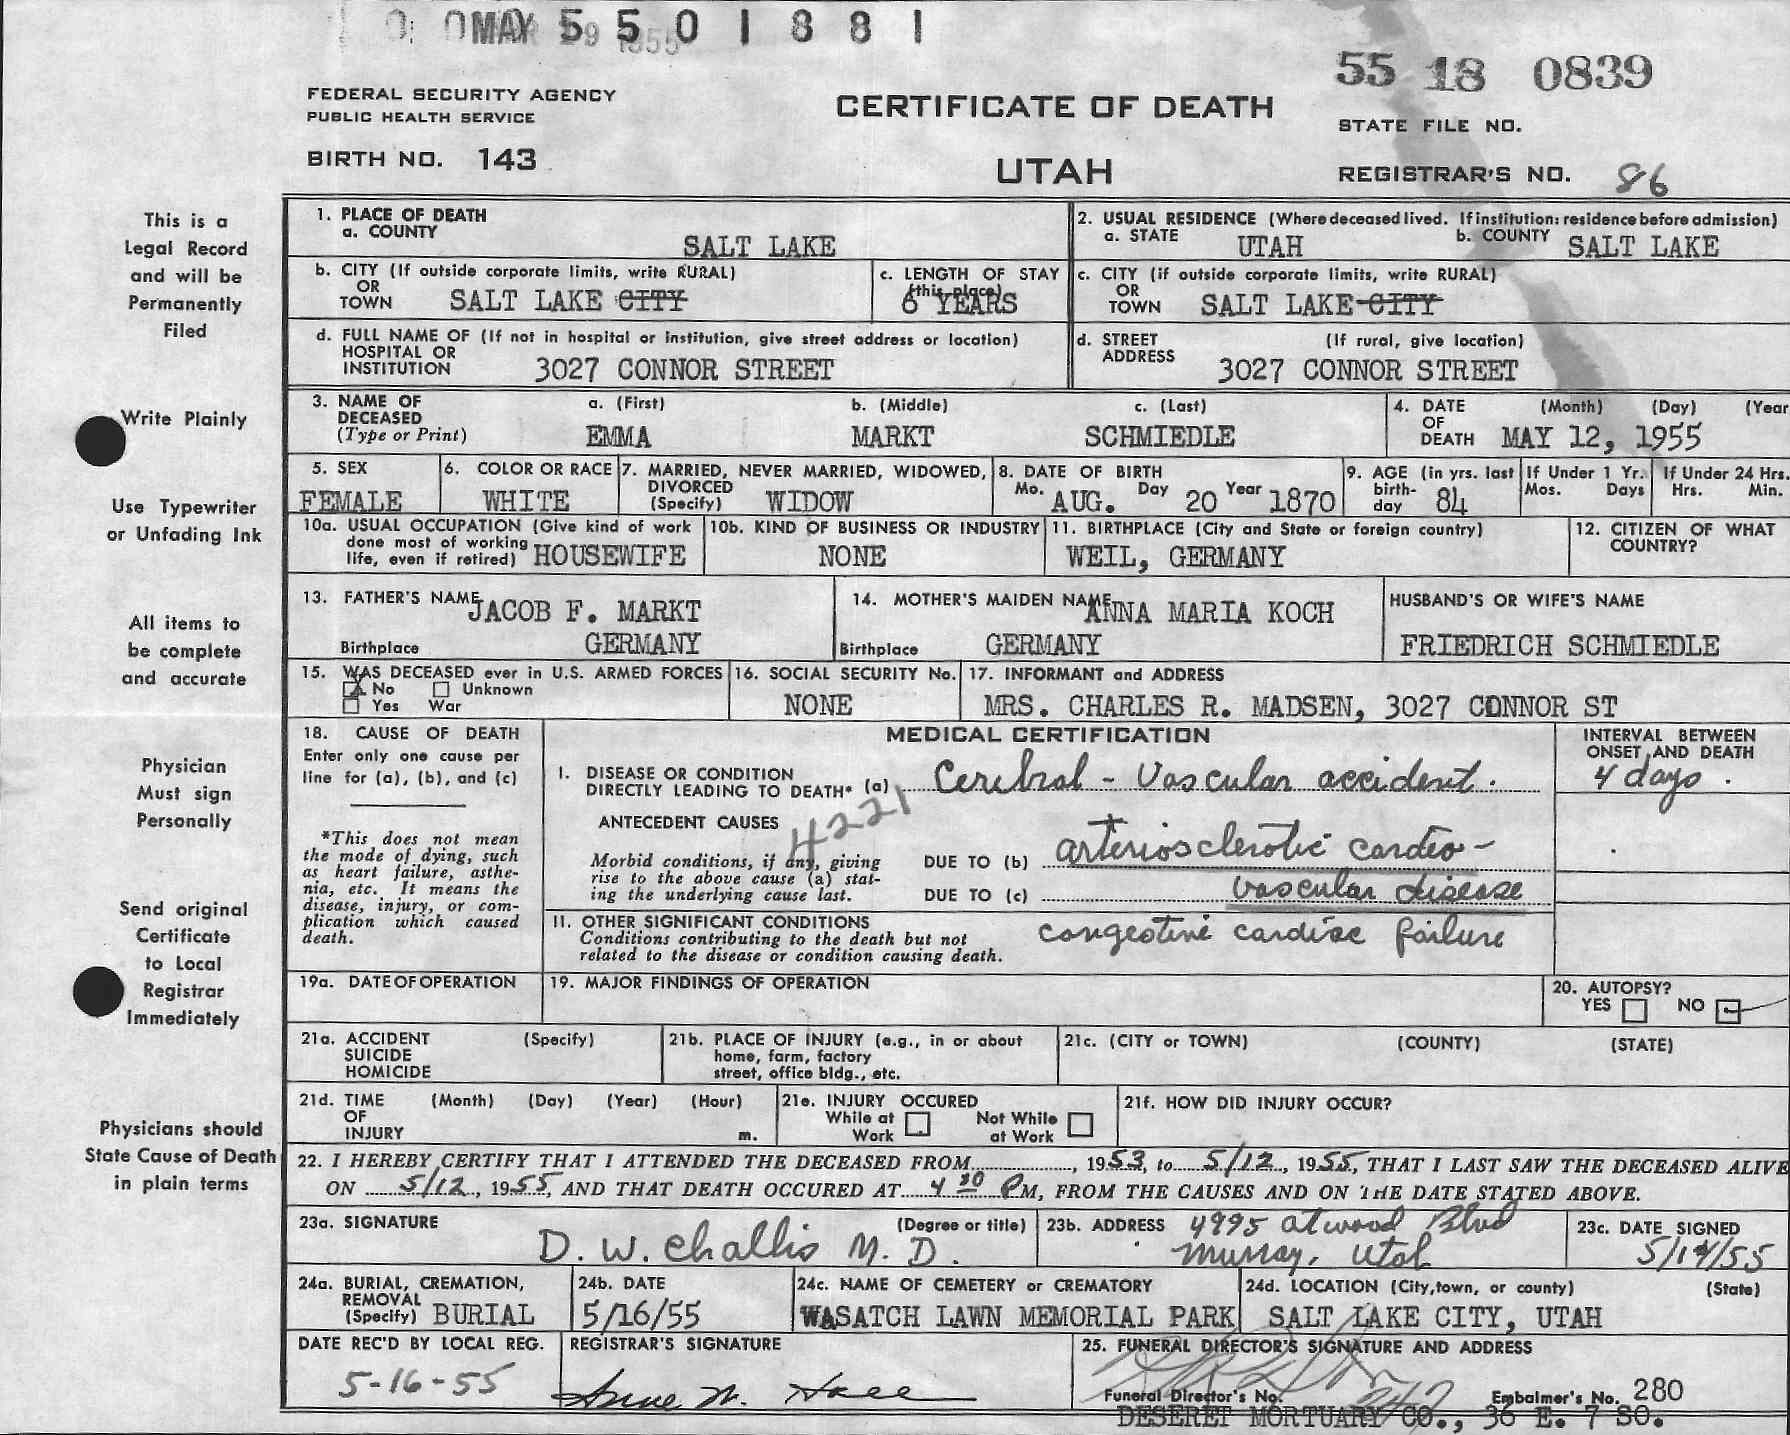 MAY 5 5 0 1 8 8 1
55 18 0839
FEDERAL SECURITY AGENCY
PUBLIC HEALTH SERVICE
CERTIFICATE OF DEATH
STATE FILE NO.
BIRTH NO. 143
UTAH
REGISTRAR'S NO. 86
This is a
Legal Record
and will be
Permanently
Filed
Write Plainly
Use Typewriter
or Unfading Ink
All items to
be complete
and accurate
Physician
Must sign
Personally
Send original
Certificate
to Local
Registrar
Immediately
Physicians should
State Cause of Death
in plain terms
1. PLACE OF DEATH
a. COUNTY
SALT LAKE
2. USUAL RESIDENCE (Where deceased lived. If institution: residence before admission)
a. STATE UTAH b. COUNTY SALT LAKE
b. CITY (If outside corporate limits, write RURAL)
OR
TOWN SALT LAKE CITY
c. LENGTH OF STAY
(this place)
6 YEARS
c. CITY (if outside corporate limits, write RURAL)
OR
TOWN SALT LAKE CITY
d. FULL NAME OF (If not in hospital or institution, give street address or location)
HOSPITAL OR
INSTITUTION 3027 CONNOR STREET
d. STREET (If rural, give location)
ADDRESS 3027 CONNOR STREET
3. NAME OF a. (First) b. (Middle) c. (Last)
DECEASED
(Type or Print) EMMA MARKT SCHMIEDLE
4. DATE (Month) (Day) (Year
OF
DEATH MAY 12, 1955
5. SEX
FEMALE
6. COLOR OR RACE
WHITE
7. MARRIED, NEVER MARRIED, WIDOWED,
DIVORCED
(Specify) WIDOW
8. DATE OF BIRTH
Mo. AUG. Day 20 Year 1870
9. AGE (in yrs. last
birth-
day 84
If Under 1 Yr.
Mos. Days
If Under 24 Hrs.
Hrs. Min.
10a. USUAL OCCUPATION (Give kind of work
done most of working
life, even if retired) HOUSEWIFE
10b. KIND OF BUSINESS OR INDUSTRY
NONE
11. BIRTHPLACE (City and State or foreign country)
WEIL, GERMANY
12. CITIZEN OF WHAT
COUNTRY?
13. FATHER'S NAME JACOB F. MARKT
Birthplace GERMANY
14. MOTHER'S MAIDEN NAME ANNA MARIA KOCH
Birthplace GERMANY
HUSBAND'S OR WIFE'S NAME
FRIEDRICH SCHMIEDLE
15. WAS DECEASED ever in U.S. ARMED FORCES
No Unknown
Yes War
16. SOCIAL SECURITY No.
NONE
17. INFORMANT and ADDRESS
MRS. CHARLES R. MADSEN, 3027 CONNOR ST
18. CAUSE OF DEATH
Enter only one cause per
line for (a), (b), and (c)
*This does not mean
the mode of dying, such
as heart failure, asthe-
nia, etc. It means the
disease, injury, or com-
plication which caused
death.
MEDICAL CERTIFICATION
INTERVAL BETWEEN
ONSET AND DEATH
I. DISEASE OR CONDITION
DIRECTLY LEADING TO DEATH* (a) Cerebral - Vascular accident. 4 days.
ANTECEDENT CAUSES
4221
Morbid conditions, if any, giving
rise to the above cause (a) stat-
ing the underlying cause last.
DUE TO (b) arteriosclerotic cardio-
DUE TO (c) vascular disease
II. OTHER SIGNIFICANT CONDITIONS
Conditions contributing to the death but not
related to the disease or condition causing death.
congestive cardiac failure
19a. DATE OF OPERATION
19. MAJOR FINDINGS OF OPERATION
20. AUTOPSY?
YES NO
21a. ACCIDENT (Specify)
SUICIDE
HOMICIDE
21b. PLACE OF INJURY (e.g., in or about
home, farm, factory
street, office bldg., etc.
21c. (CITY or TOWN) (COUNTY) (STATE)
21d. TIME (Month) (Day) (Year) (Hour)
OF
INJURY m.
21e. INJURY OCCURED
While at Not While
Work at Work
21f. HOW DID INJURY OCCUR?
22. I HEREBY CERTIFY THAT I ATTENDED THE DECEASED FROM............, 1953, to 5/12, 1955, THAT I LAST SAW THE DECEASED ALIVE
ON 5/12, 1955, AND THAT DEATH OCCURED AT 4 30 PM, FROM THE CAUSES AND ON THE DATE STATED ABOVE.
23a. SIGNATURE (Degree or title)
D. W. Challis M. D.
23b. ADDRESS 4995 atwood Blvd
Murray, Utah
23c. DATE SIGNED
5/14/55
24a. BURIAL, CREMATION,
REMOVAL
(Specify) BURIAL
24b. DATE
5/16/55
24c. NAME OF CEMETERY or CREMATORY
WASATCH LAWN MEMORIAL PARK
24d. LOCATION (City, town, or county) (State)
SALT LAKE CITY, UTAH
DATE REC'D BY LOCAL REG.
5-16-55
REGISTRAR'S SIGNATURE
Anne M.
25. FUNERAL DIRECTOR'S SIGNATURE AND ADDRESS
Funeral Director's No. 247 Embalmer's No. 280
DESERET MORTUARY CO., 36 E. 7 SO.